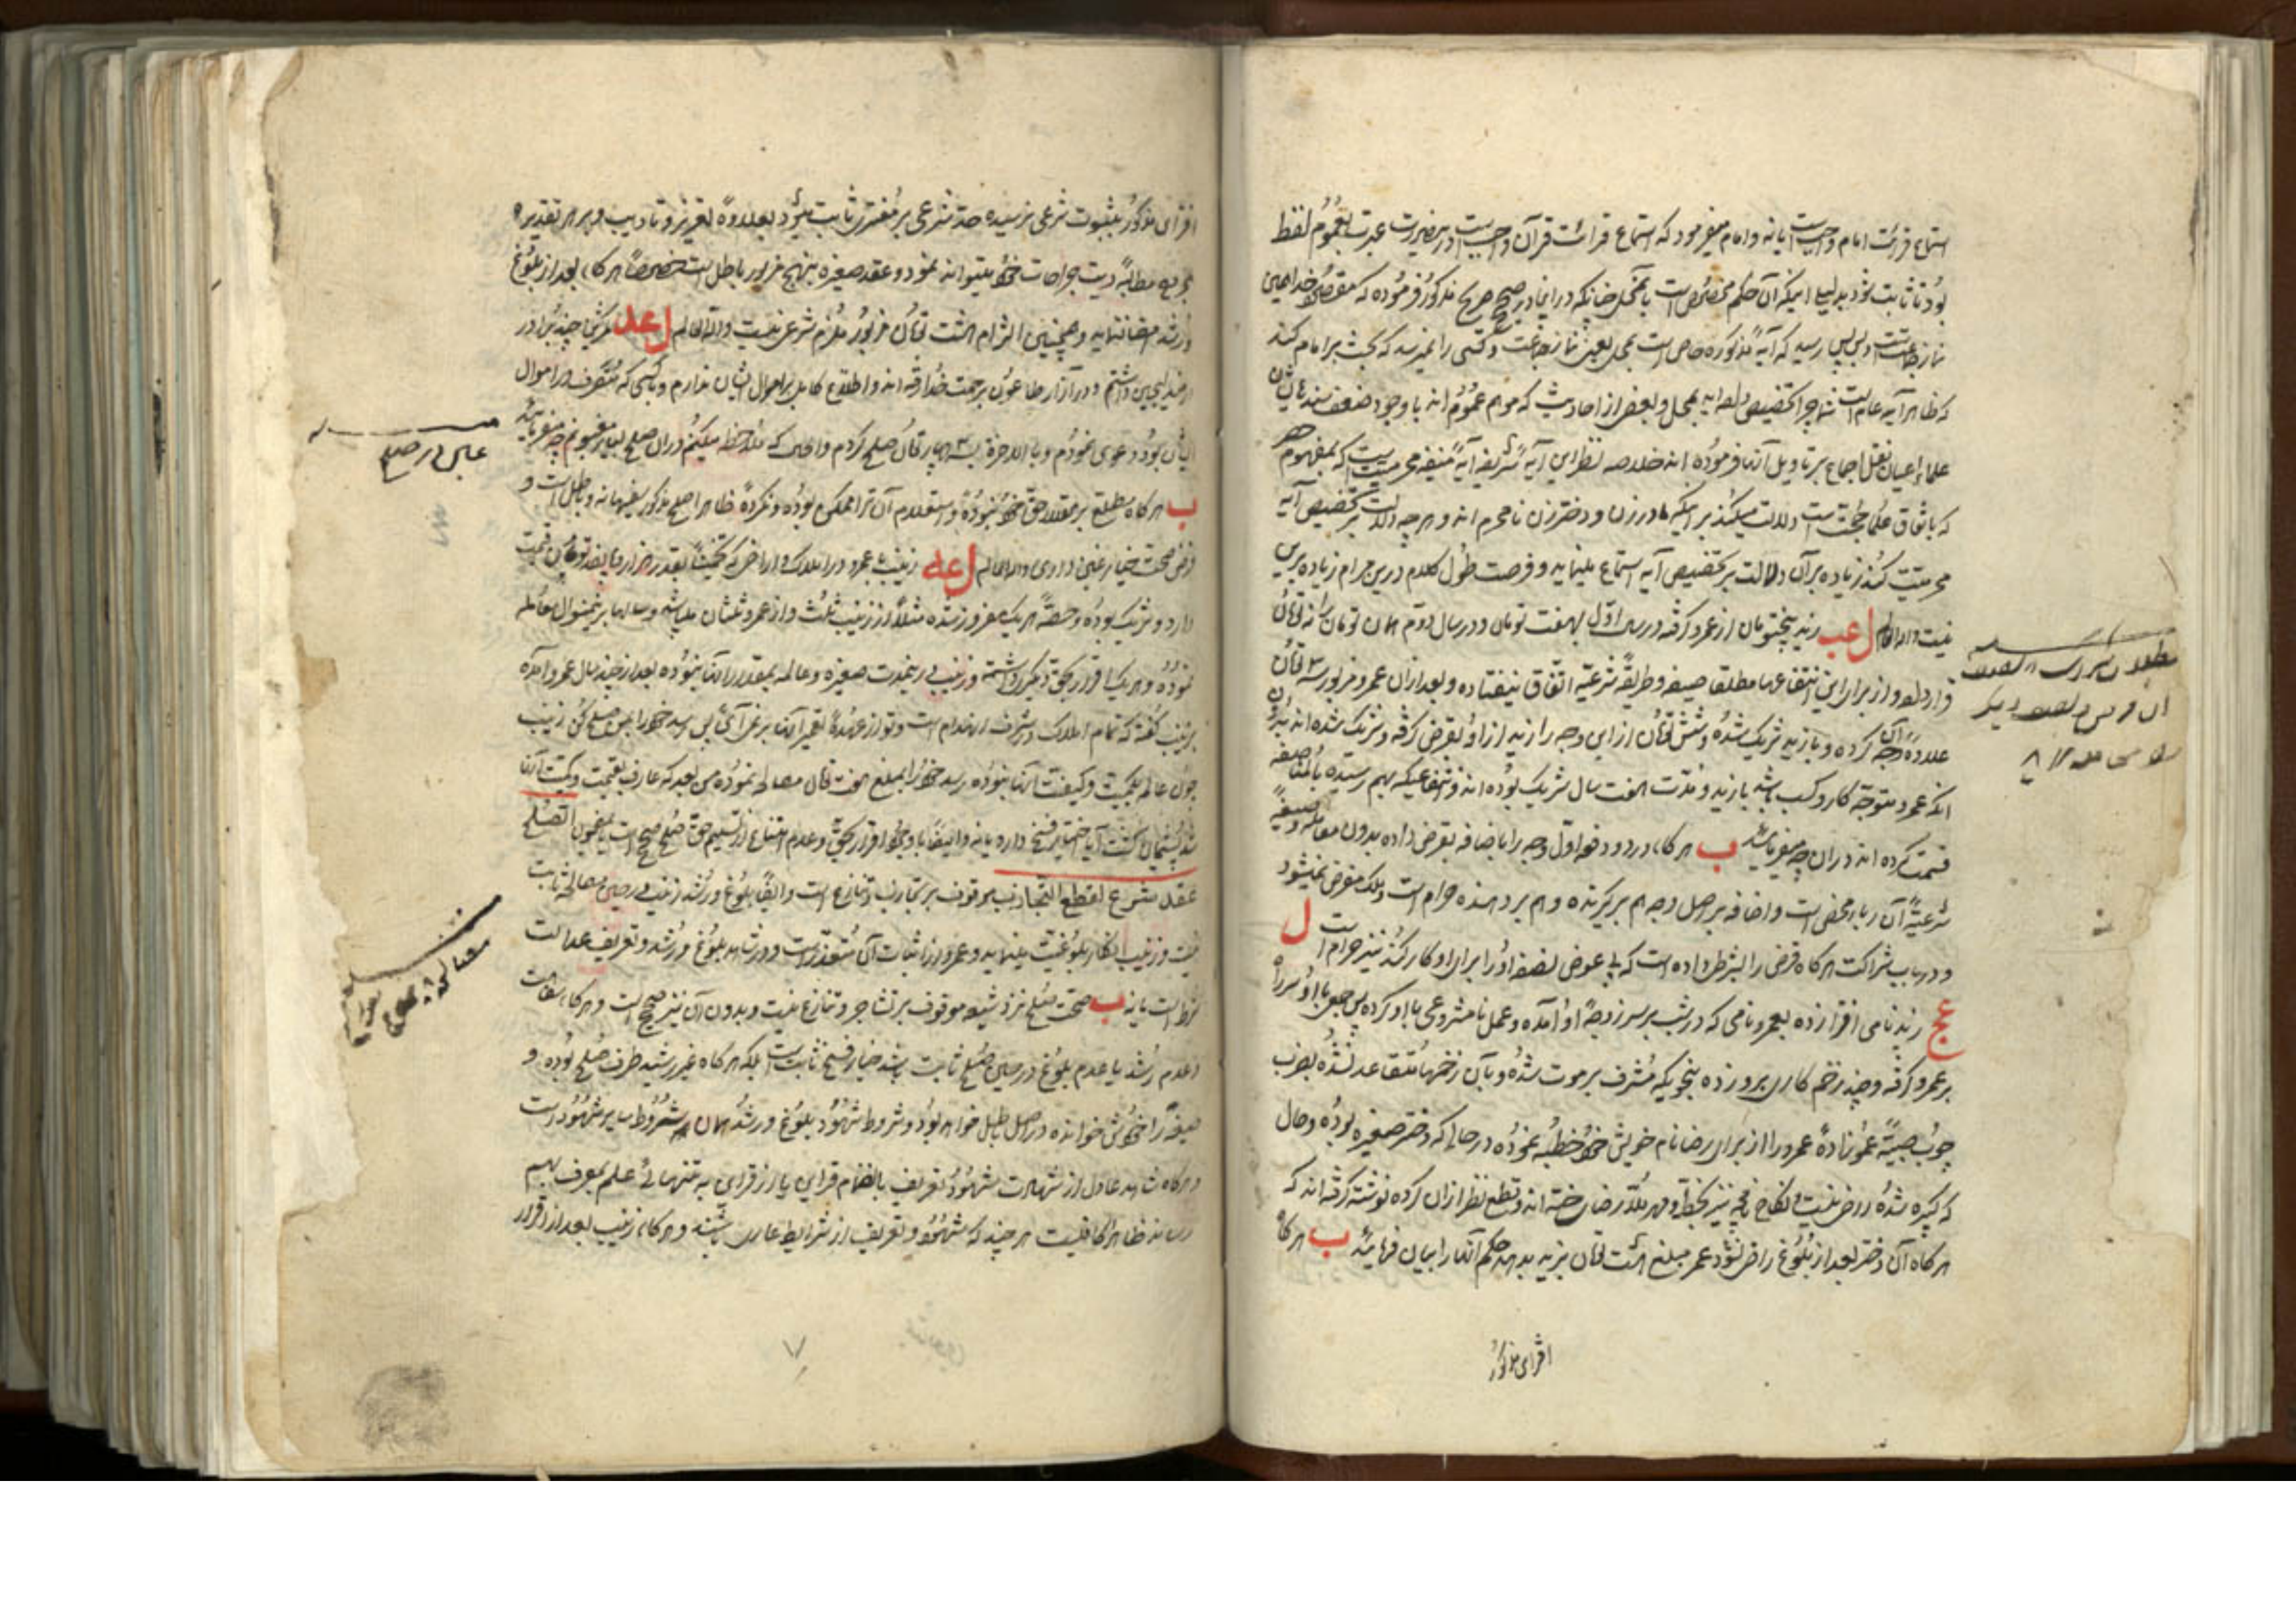 استماع قرائت امام واجبست یا نه و امام میفرمود که استماع قرائت قرآن واجبست در بصورت عبرت بعموم لفظ
بود تا ثابت نزد بدلیل اینکه آن حکم مخصوص است بمحل چنانکه در این صحیح صریح مذکور فرموده که
نماز جماعتست و پس رسید که آیه مذکوره خاص است بمحل یعنی نماز جماعت و کسی را نمیرسد که بحث بر امام کند
که ظاهر آیه عام است شما چرا تخصیص داده اید بمحل و بعضی از احادیث که موهم عموم اند با وجود ضعف سند
علماء اعیان نقل اجماع بر تاویل آنها فرموده اند خلاصه نظر این آیه شریفه آیه محرمیت است که بمفهوم
که باتفاق علما حجت است دلالت میکند بر اینکه مادر زن و دختر زن نامحرم اند و هر چه دلالت بر تخصیص آیه
محرمیت کند زیاده بر آن دلالت بر تخصیص آیه استماع مینماید و فرصت طول کلام درین مرام زیاده برین
نیست والله العالم ل عب زید پنجتومان از عمرو گرفته در سال اول بهفت تومان و در سال دوم همان تومان را نه تومان
قرار داده و از برای این انتفاعها مطلقا صیغه و طریقه شرعیه اتفاق نیفتاده و بعد از آن عمرو مزبور سه تومان
علاوه آن وجه کرده و با زید شریک شده و شش تومان از این وجه را زید از او بقرض گرفته و شریک شده اند
آنکه عمرو متوجه کار و کسب باشد با زید و مدت هفت سال شریک بوده اند و انتفاعیکه بهم رسیده بالمناصفه
قسمت کرده اند در آن چه میفرمایند ب هر گاه در دو دفعه اول وجه را باضافه بقرض داده بدون معامله و صیغه
شرعیه آن ربا محض است و اضافه بر اصل وجه هم بر گیرنده و هم بر دهنده حرام است و ملک مقرض نمیشود
و در باب شراکت هر گاه قرض را بشرطی داده است که بی عوض نصف او را برای او کار کند نیز حرام است ل
عج زید نامی افترا زده بعمرو نامی که در شب بر سر زوجه او آمده و عمل نامشروعی با او کرده پس
بر عمرو گرفته و چند زخم کاری برو زده بنحویکه مشرف بر موت شده و بآن زخمها متقاعد نشده بضرب
چوب صبیه عموزاده عمرو را از برای رضا نام خویش خود خطبه نموده در حالی که دختر صغیره بوده و حال
که کبیره شده راضی نیست و نکاح نامچه نیز بخط و مهر ملا رضا ساخته اند و قطع نظر از آن کرده نوشته گرفته اند که
هر گاه آن دختر بعد از بلوغ راضی نشود عمرو مبلغ هشت تومان بزید بدهد حکم آنها را بیان فرمایند ب هر گاه
افترای مذکور
افترای مذکور بثبوت شرعی نرسیده حد شرعی بر مفتری ثابت میشود بعلاوه تعزیر و تادیب و بر هر تقدیر
مجروح مطالبه دیت جراحات خود میتواند نمود و عقد صغیره بنهج مزبور باطل است خصوصاً هر گاه بعد از بلوغ
و رشد امضا ننماید و همچنین التزام هشت تومان مزبور ملزم شرعی نیست والله العالم ل عد
داشتم و در آزار طاعون برحمت خدا رفته اند و اطلاع کامل بر اموال ایشان ندارم و با کسی که متصرف در اموال
ایشان بود دعوی نمودم و بالاخره بسه چهار تومان صلح کردم و الحال که ملاحظه میکنم در آن صلح بسیار مغبونم چه میفرمایند
ب هر گاه مطلع بر مقدار حق خود نبوده و استعلام آن ترا ممکن بوده و نکرده ظاهرا صلح مذکور سفیهانه و باطل است و
فرض صحت خیار غبن داری والله العالم ل عه زینب با عمرو در املاک و اراضی که تخمیناً بقدر هزار و پانصد تومان قیمت
دارد شریک بوده و حصه هر یک مفروز شده مثلا از زینب ثلث و از عمرو ثلثان میباشد و سالها برین منوال معامله
نموده و هر یک اقرار بحق دیگری داشته و زینب در ینمدت صغیره و عالمه بمقدار آنها نبوده بعد از چند سال عمرو آمده
بزینب گفته که تمام املاک مشرف انهدام است و تو از عهده تعمیر آنها بر نمی آئی پس رسد خود را بمن صلح کن زینب
چون عالم بکمیت و کیفیت آنها نبوده رسد خود را بمبلغ هفت تومان مصالحه نموده پس بعد که عارف بقیمت و کمیت آنها
شد پشیمان گشت آیا اختیار فسخ دارد یا نه و ایضا با وجود اقرار بحق و عدم امتناع از تسلیم حق صلح صحیح است بمضمون الصلح
عقد شرع لقطع التجاذب موقوف بر تجاذب و تنازع است و ایضا بلوغ و رشد زینب در حین مصالحه ثابت
نیست و زینب انکار بلوغیت مینماید و عمرو را اثبات آن متعذر است و در شاهد بلوغ و رشد و تعریف عدالت
شرط است یا نه ب صحت صلح نزد شیعه موقوف بر تشاجر و تنازع نیست و بدون آن نیز صحیح است و هر گاه سفاهت
و عدم رشد یا عدم بلوغ در حین صلح ثابت باشد خیار فسخ ثابت است بلکه هر گاه غیر رشید طرف صلح بوده و
صیغه را خودش خوانده در اصل باطل خواهد بود و شروط شهود بلوغ و رشد همان شروط سایر شهود است
و هر گاه شاهد عادل از شهادت شهود تعریف بانضمام قراین یا از قراین به تنهائی علم بمعرف بهم
رساند ظاهرا کافیست هر چند که شهود تعریف از شرایط عاری باشند و هر گاه زینب بعد از اقرار
غبن در صلح